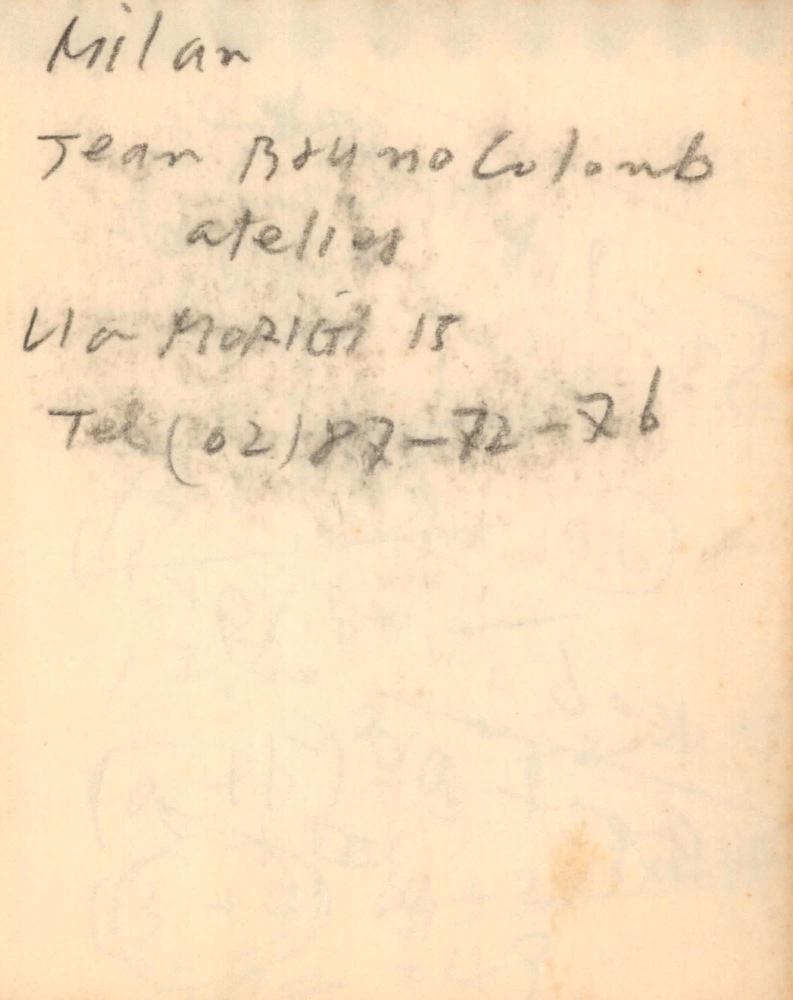 Milan
Jean Bruno Colomb
atelier
Via MORIGI 15
Tel (02) 87-72-76